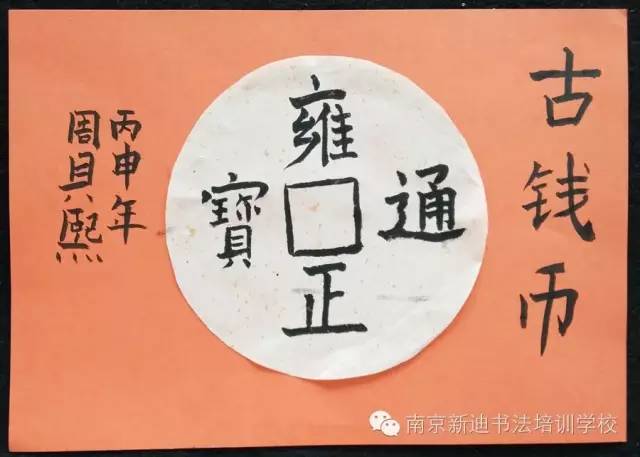 古钱币
雍正
通寳
丙申年
周贝熙
南京新迪书法培训学校